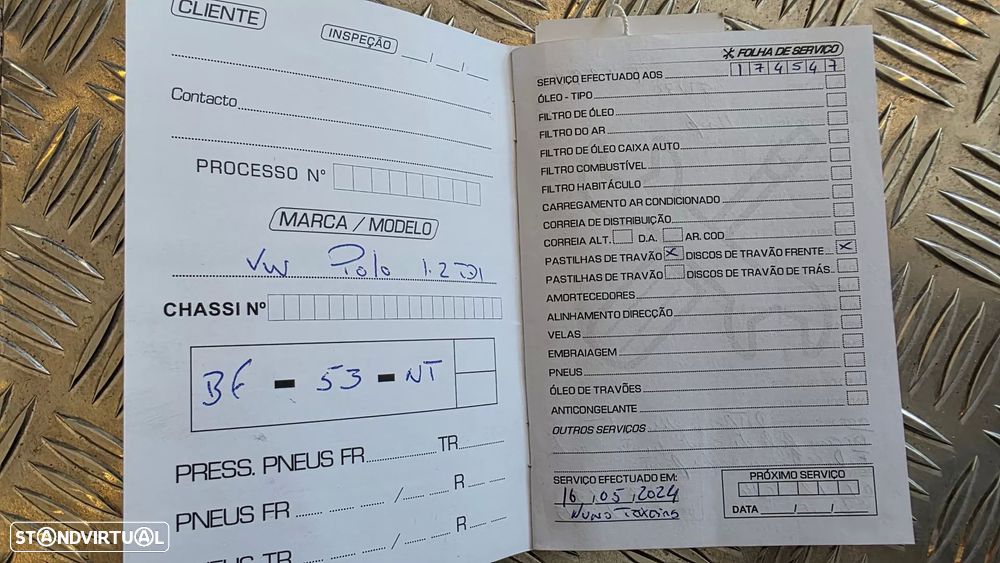 CLIENTE
INSPEÇÃO __/__/__
Contacto
PROCESSO Nº
MARCA / MODELO
VW Polo 1.2 TDI
CHASSI Nº
BE - 53 - NT
PRESS. PNEUS FR. TR.
PNEUS FR / R
PNEUS TR / R
FOLHA DE SERVIÇO
SERVIÇO EFECTUADO AOS 174547
ÓLEO - TIPO
FILTRO DE ÓLEO
FILTRO DO AR
FILTRO DE ÓLEO CAIXA AUTO
FILTRO COMBUSTÍVEL
FILTRO HABITÁCULO
CARREGAMENTO AR CONDICIONADO
CORREIA DE DISTRIBUIÇÃO
CORREIA ALT. D.A. AR. COD
PASTILHAS DE TRAVÃO X DISCOS DE TRAVÃO FRENTE X
PASTILHAS DE TRAVÃO DISCOS DE TRAVÃO DE TRÁS
AMORTECEDORES
ALINHAMENTO DIRECÇÃO
VELAS
EMBRAIAGEM
PNEUS
ÓLEO DE TRAVÕES
ANTICONGELANTE
OUTROS SERVIÇOS
SERVIÇO EFECTUADO EM:
16 / 05 / 2024
Nuno Teixeira
PRÓXIMO SERVIÇO
DATA __/__/__
STANDVIRTUAL